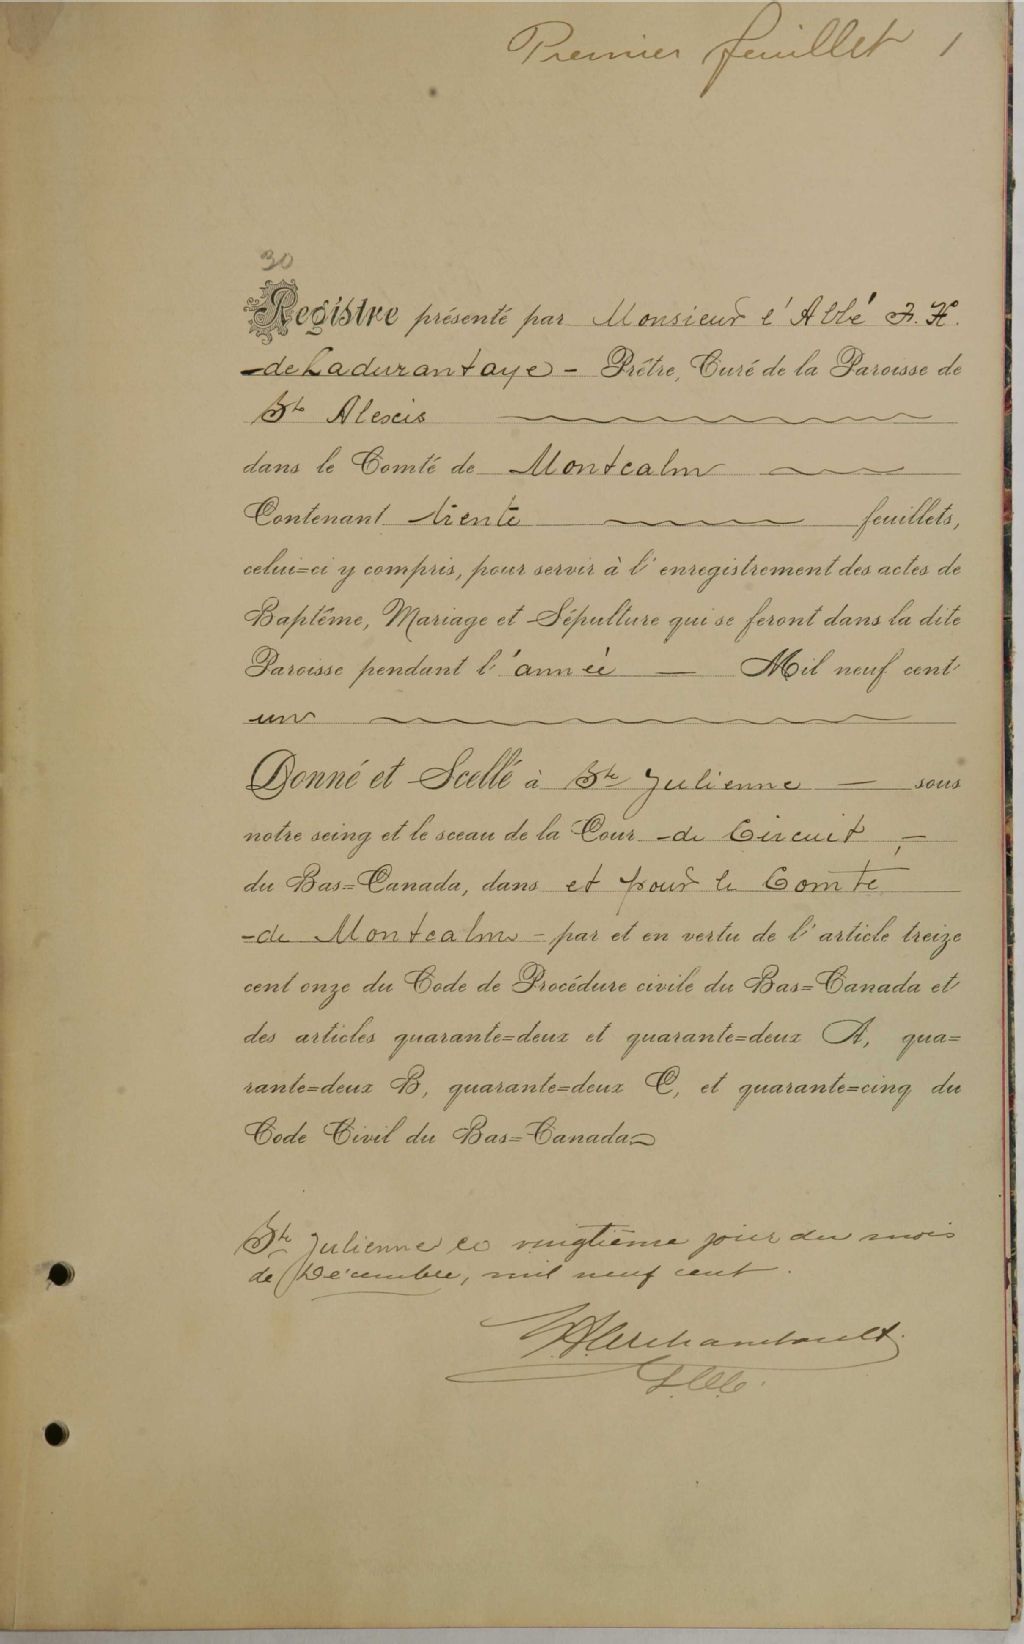 Premier feuillet 1
30
Registre présenté par Monsieur l'Abbé F. X.
de Ladurantaye - Prêtre, Curé de la Paroisse de
St Alexis
dans le Comté de Montcalm
Contenant trente feuillets,
celui=ci y compris, pour servir à l'enregistrement des actes de
Baptême, Mariage et Sépulture qui se feront dans la dite
Paroisse pendant l'année — Mil neuf cent
un
Donné et Scellé à Ste Julienne — sous
notre seing et le sceau de la Cour de Circuit,
du Bas=Canada, dans et pour le Comté
de Montcalm - par et en vertu de l'article treize
cent onze du Code de Procédure civile du Bas=Canada et
des articles quarante=deux et quarante=deux A, qua=
rante=deux B, quarante=deux C, et quarante=cinq du
Code Civil du Bas=Canada
Ste Julienne ce vingtième jour du mois
de Décembre, mil neuf cent.
Archambault